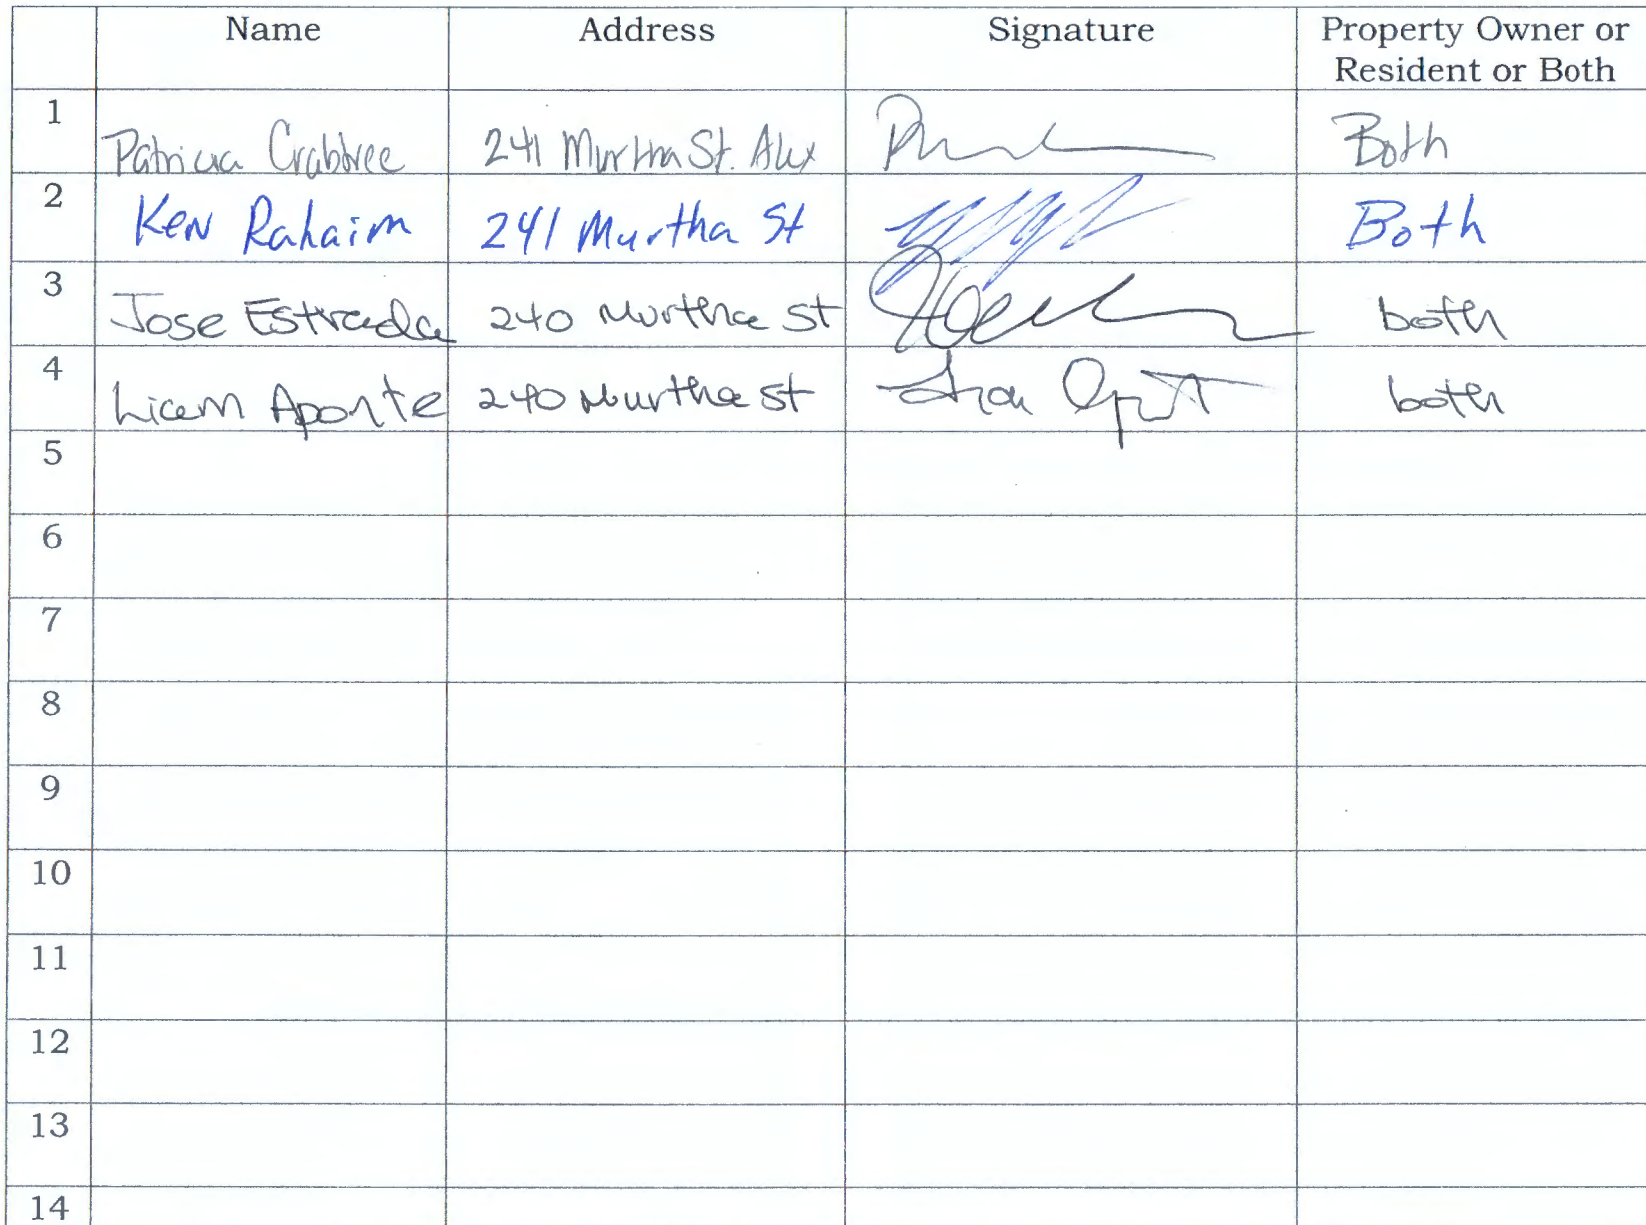 Name Address Signature Property Owner or
Resident or Both
1 Patricia Crabtree 241 Murtha St. Alex Both
2 Ken Rahaim 241 Murtha St Both
3 Jose Estrada 240 Murtha St both
4 Liam Aponte 240 Murtha St both
5
6
7
8
9
10
11
12
13
14